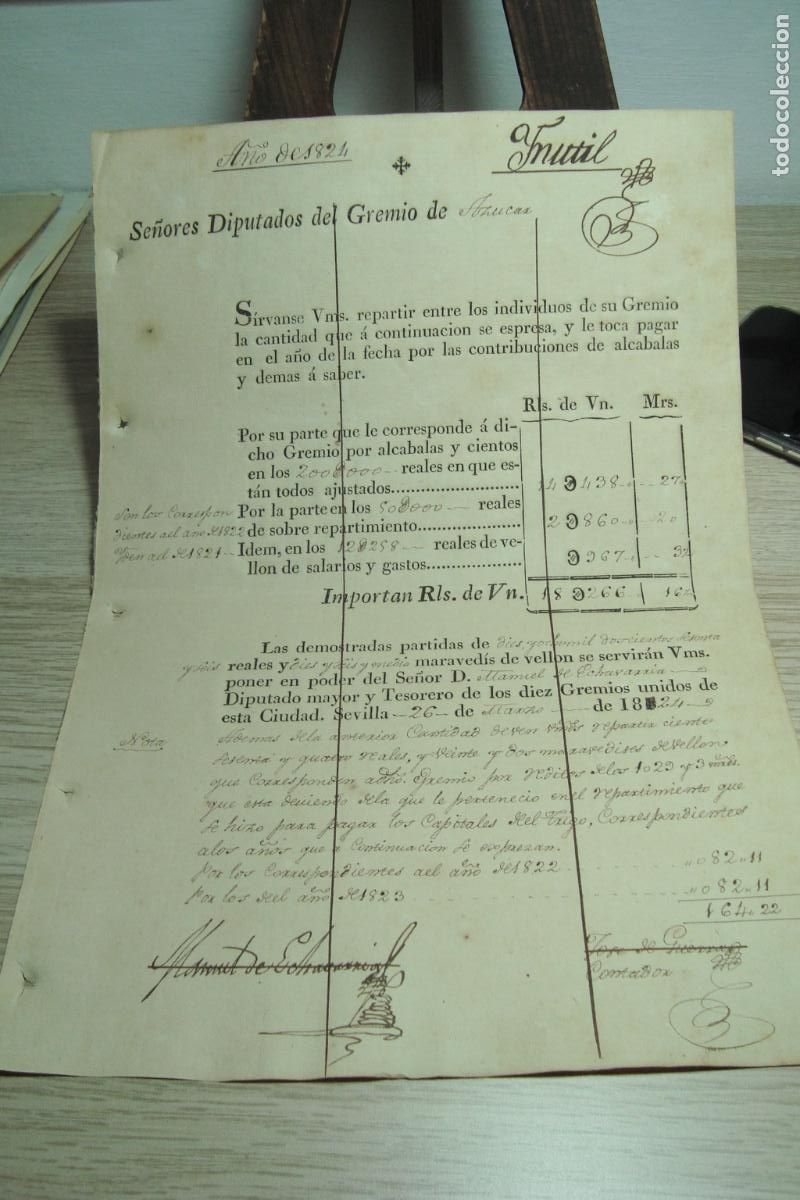 todocoleccion
Año de 1824
Inutil
Señores Diputados del Gremio de Azucar
Sírvanse Vms. repartir entre los individuos de su Gremio
la cantidad que á continuacion se espresa, y le toca pagar
en el año de la fecha por las contribuciones de alcabalas
y demas á saber.
Rls. de Vn. Mrs.
Por su parte que le corresponde á di-
cho Gremio por alcabalas y cientos
en los reales en que es-
tán todos ajustados........................ 14Đ438 27
Son los Correspon Por la parte en los 50Đ000 reales
dientes al año de 1822 de sobre repartimiento................... 2Đ860 20
Yden al de 1821 Idem, en los 12Đ258 reales de ve-
llon de salarios y gastos.................. Đ967
Importan Rls. de Vn. 18Đ266 16
Las demostradas partidas de dies, yocho mil doscientos sesenta
y seis reales y dies y seis y medio maravedís de vellon se servirán Vms.
poner en poder del Señor D. Manuel de Echavarria
Diputado mayor y Tesorero de los diez Gremios unidos de
esta Ciudad. Sevilla 26 de Marzo de 1824
Nota Ademas dela anterior Cantidad deven Vmds repartir ciento
sesenta y quatro reales, y veinte y dos maravedises de Vellon,
que Corresponden adho. Gremio por reditos delos 1029 y 3 mrds.
que esta deviendo dela que le pertenecio en el repartimiento que
se hizo para pagar los Capitales del Trigo, Correspondientes
alos años que a Continuacion se expresan.
Por los Correspondientes ael año de 1822 082..11
Por los del año de 1823 082..11
164..22
Manuel de Echavarria
Jose de Guerra
Contador